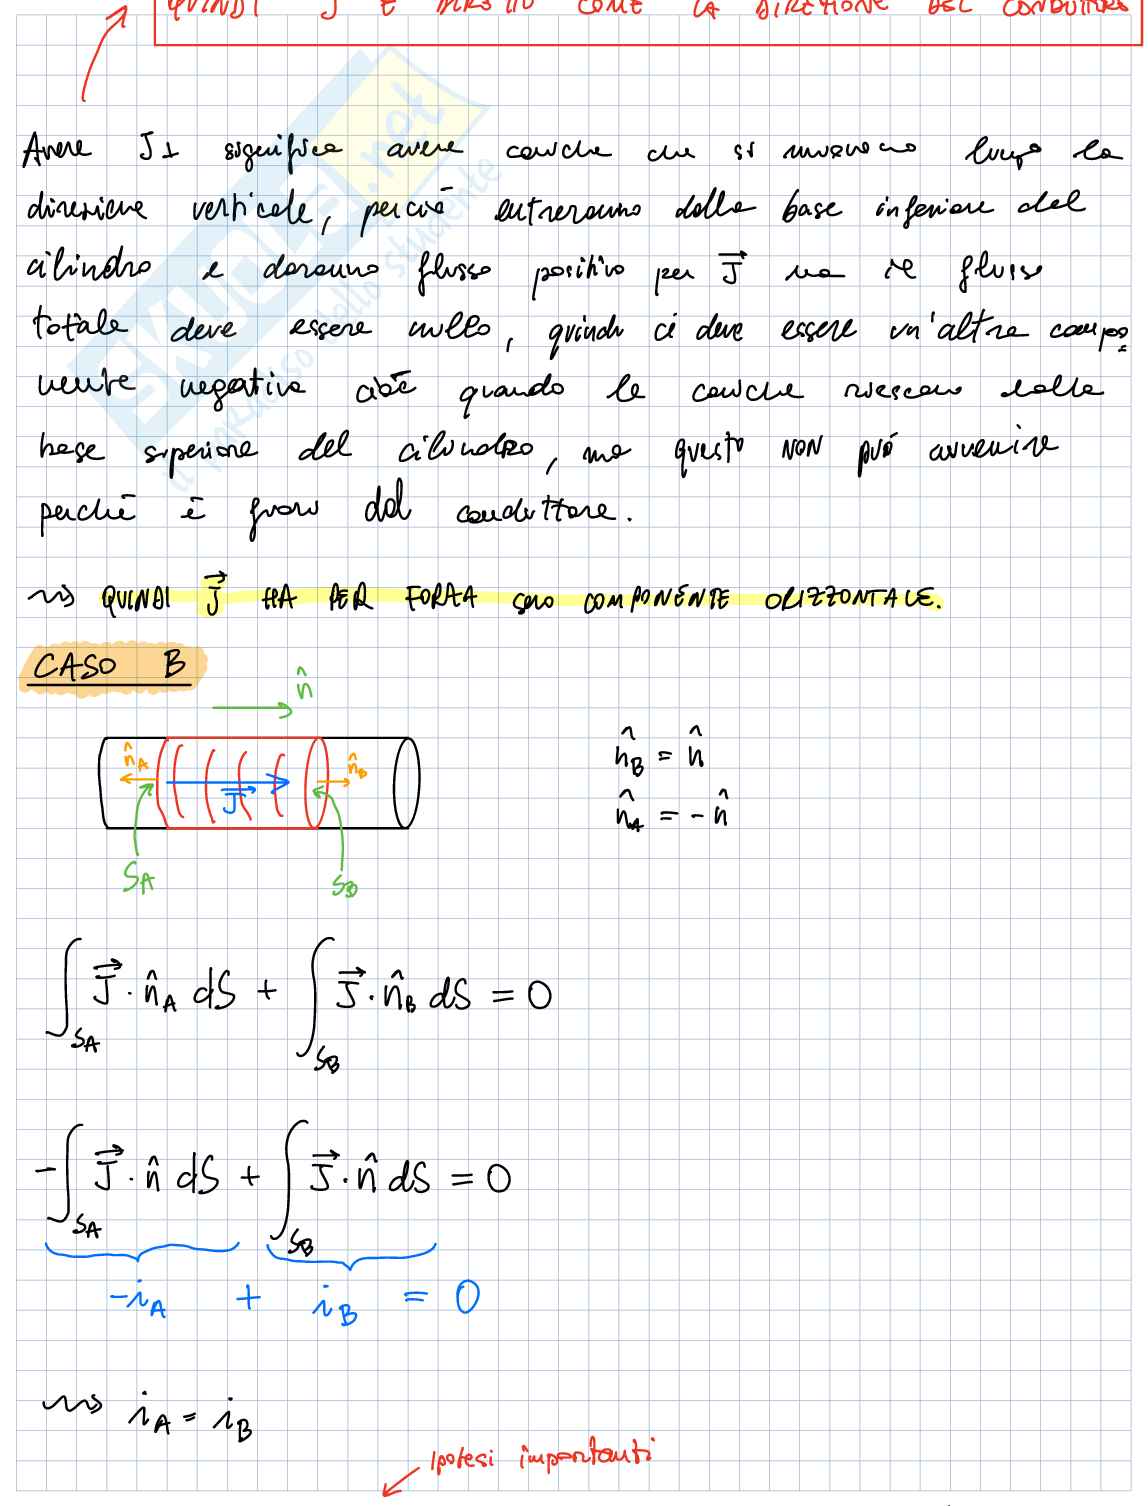 QUINDI J È DIRETTO COME LA DIREZIONE DEL CONDUTTORE
Avere J⊥ significa avere cariche che si muovono lungo la
direzione verticale, perciò entreranno dalla base inferiore del
cilindro e daranno flusso positivo per J⃗ ma il flusso
totale deve essere nullo, quindi ci deve essere un'altra compo
nente negativa cioè quando le cariche riescano dalla
base superiore del cilindro, ma questo NON può avvenire
perché è fuori dal conduttore.
⇝ QUINDI J⃗ HA PER FORZA solo COMPONENTE ORIZZONTALE.
CASO B
n̂
n̂A n̂B
J⃗
SA SB
n̂B = n̂
n̂A = - n̂
∫SA J⃗ · n̂A dS + ∫SB J⃗ · n̂B dS = 0
-∫SA J⃗ · n̂ dS + ∫SB J⃗ · n̂ dS = 0
-iA + iB = 0
⇝ iA = iB
Ipotesi importanti
SKUOLA.net
il paradiso dello studente